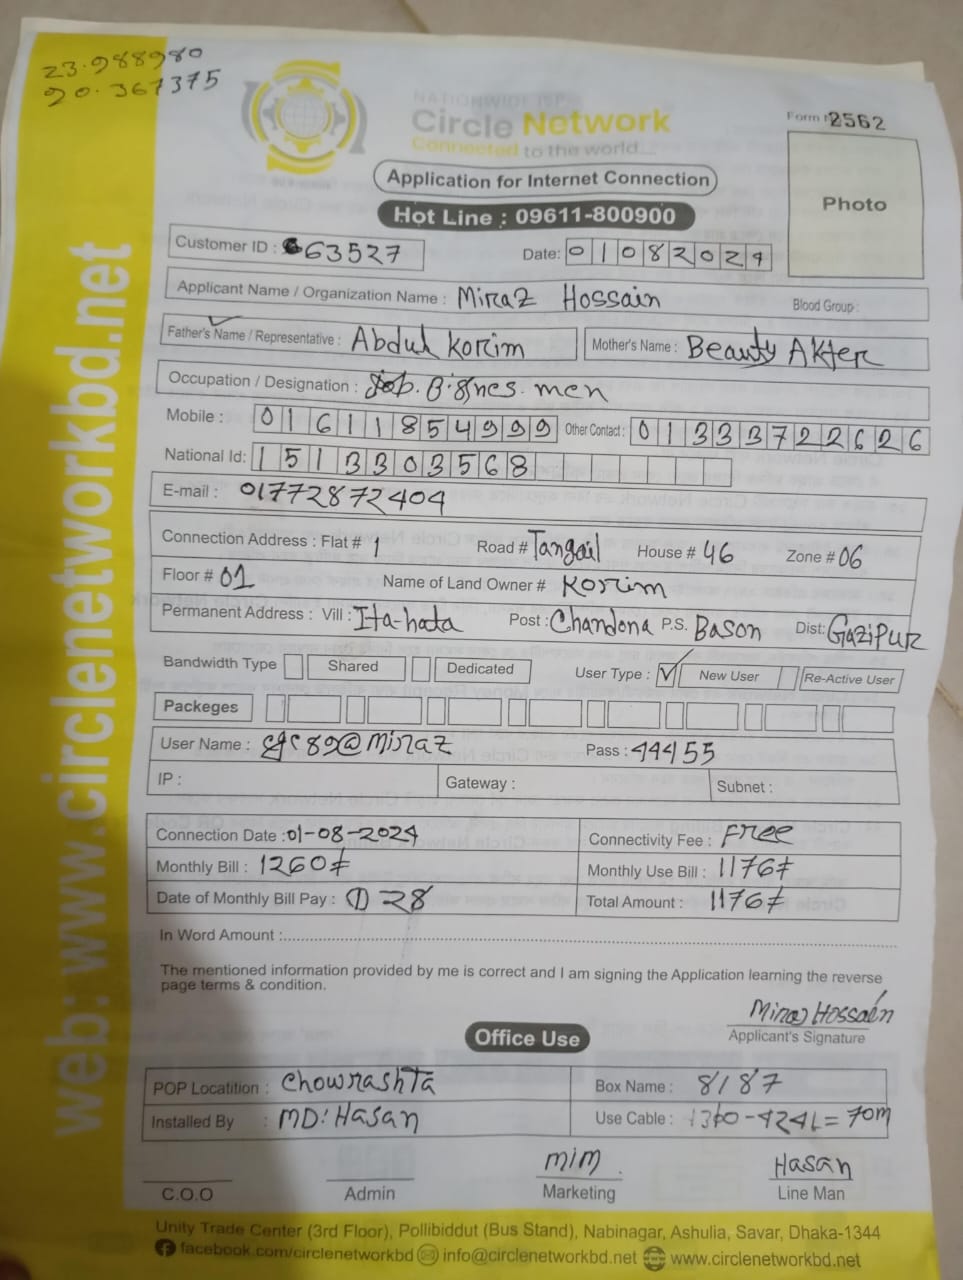 23.988980
90.367375
NATIONWIDE ISP
Circle Network
Connected to the world...
Form #2562
Application for Internet Connection
Photo
Hot Line : 09611-800900
Customer ID : 63527 Date: 01082024
Applicant Name / Organization Name : Miraz Hossain Blood Group :
Father's Name / Representative : Abdul Korim Mother's Name : Beauty Akter
Occupation / Designation : men
Mobile : 01611854999 Other Contact : 01333722626
National Id: 1513303568
E-mail : 01772872404
Connection Address : Flat # 1 Road # Tangail House # 46 Zone # 06
Floor # 01 Name of Land Owner # Korim
Permanent Address : Vill : Ita-hata Post : Chandona P.S. Bason Dist: Gazipur
Bandwidth Type Shared Dedicated User Type : ✓ New User Re-Active User
Packeges
User Name : Pass : 44455
IP : Gateway : Subnet :
Connection Date : 01-08-2024 Connectivity Fee : Free
Monthly Bill : 1260/= Monthly Use Bill : 1176/=
Date of Monthly Bill Pay : 28 Total Amount : 1176/=
In Word Amount :
The mentioned information provided by me is correct and I am signing the Application learning the reverse
page terms & condition.
Miraz Hossain
Applicant's Signature
Office Use
POP Locatition : Chowrashta Box Name : 8187
Installed By : MD: Hasan Use Cable : 70m
C.O.O Admin mim Marketing Hasan Line Man
Unity Trade Center (3rd Floor), Pollibiddut (Bus Stand), Nabinagar, Ashulia, Savar, Dhaka-1344
facebook.com/circlenetworkbd info@circlenetworkbd.net www.circlenetworkbd.net
web: www.circlenetworkbd.net